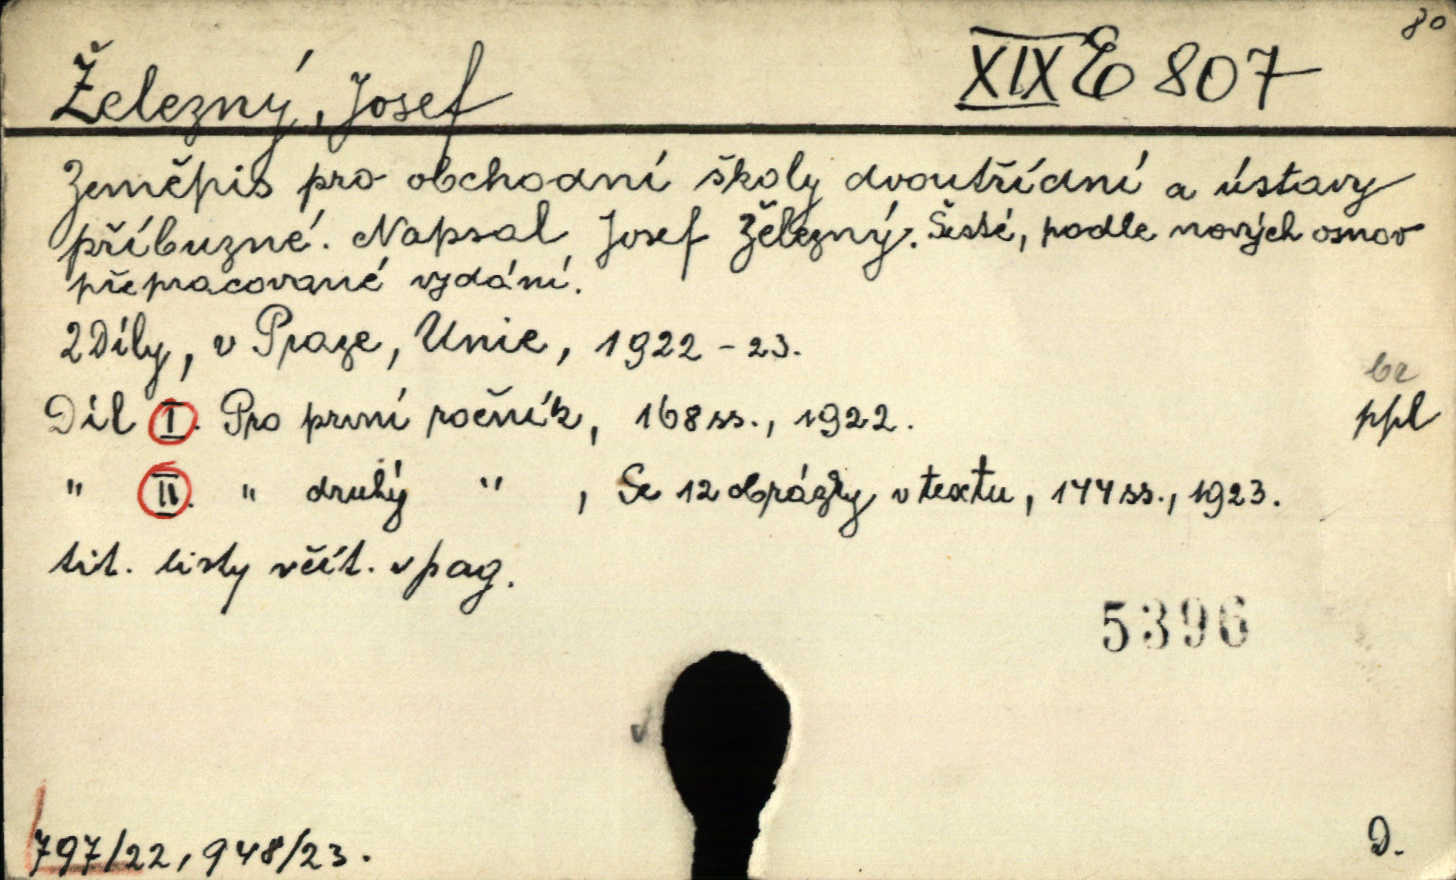 80
Železný, Josef
XIX E 807
Zeměpis pro obchodní školy dvoutřídní a ústavy
příbuzné. Napsal Josef Železný. Šesté, podle nových osnov
přepracované vydání.
2 Díly, v Praze, Unie, 1922-23.
br
Díl I. Pro první ročník, 168 ss., 1922.
ppl
" II. " druhý " , Se 12 obrázky v textu, 144 ss., 1923.
tit. listy včít. v pag.
5396
797/22, 948/23.
D.